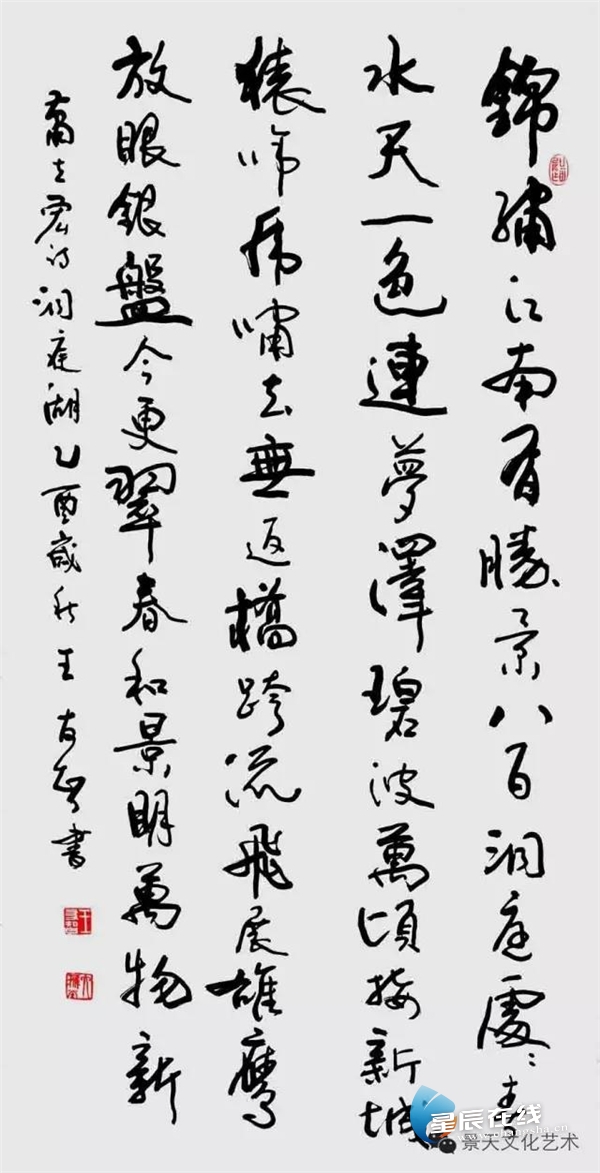 錦繡江南有勝景八百洞庭處〻春
水天一色連夢澤碧波萬頃接新城
猿啼虎嘯去無返橋跨流飛展雄鷹
放眼銀盤今更翠春和景明萬物新
蕭立宏诗洞庭湖乙酉歲秋王友智書
星辰在线
景天文化艺术